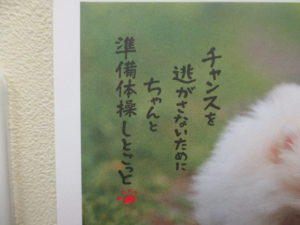 チャンスを
逃がさないために
ちゃんと
準備体操しとこっと